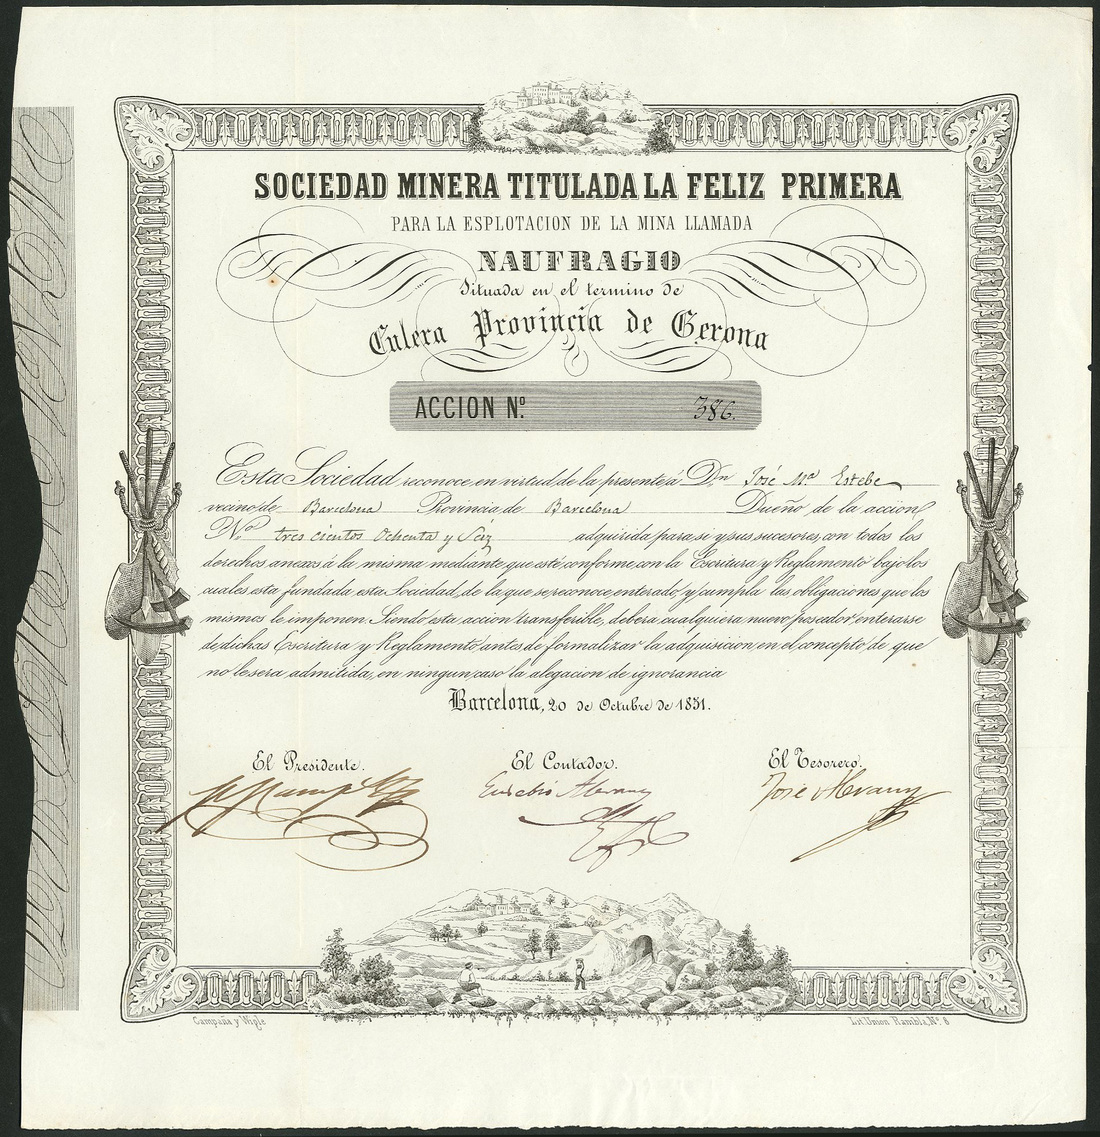 SOCIEDAD MINERA TITULADA LA FELIZ PRIMERA
PARA LA ESPLOTACION DE LA MINA LLAMADA
NAUFRAGIO
Situada en el termino de
Culera Provincia de Gerona
ACCION Nº 386.
Esta Sociedad reconoce en virtud de la presente á Dn José Mª Estebe
vecino de Barcelona Provincia de Barcelona Dueño de la accion
Nº tres cientos Ochenta y Seiz adquirida para se y sus sucesores con todos los
derechos anexos á la misma mediante que esté conforme con la Escritura y Reglamento bajo los
cuales esta fundada esta Sociedad, de la que se reconoce enterado y cumpla las obligaciones que los
mismos le imponen. Siendo esta accion transferible, debera cualquiera nuevo poseedor enterarse
de dichas Escritura y Reglamento antes de formalizar la adquisicion en el concepto de que
no le sera admitida, en ningun caso la alegacion de ignorancia
Barcelona, 20 de Octubre de 1851.
El Presidente. El Contador. El Tesorero.
Eusebio José
Campaña y Viple Lit. Union Rambla, Nº 6